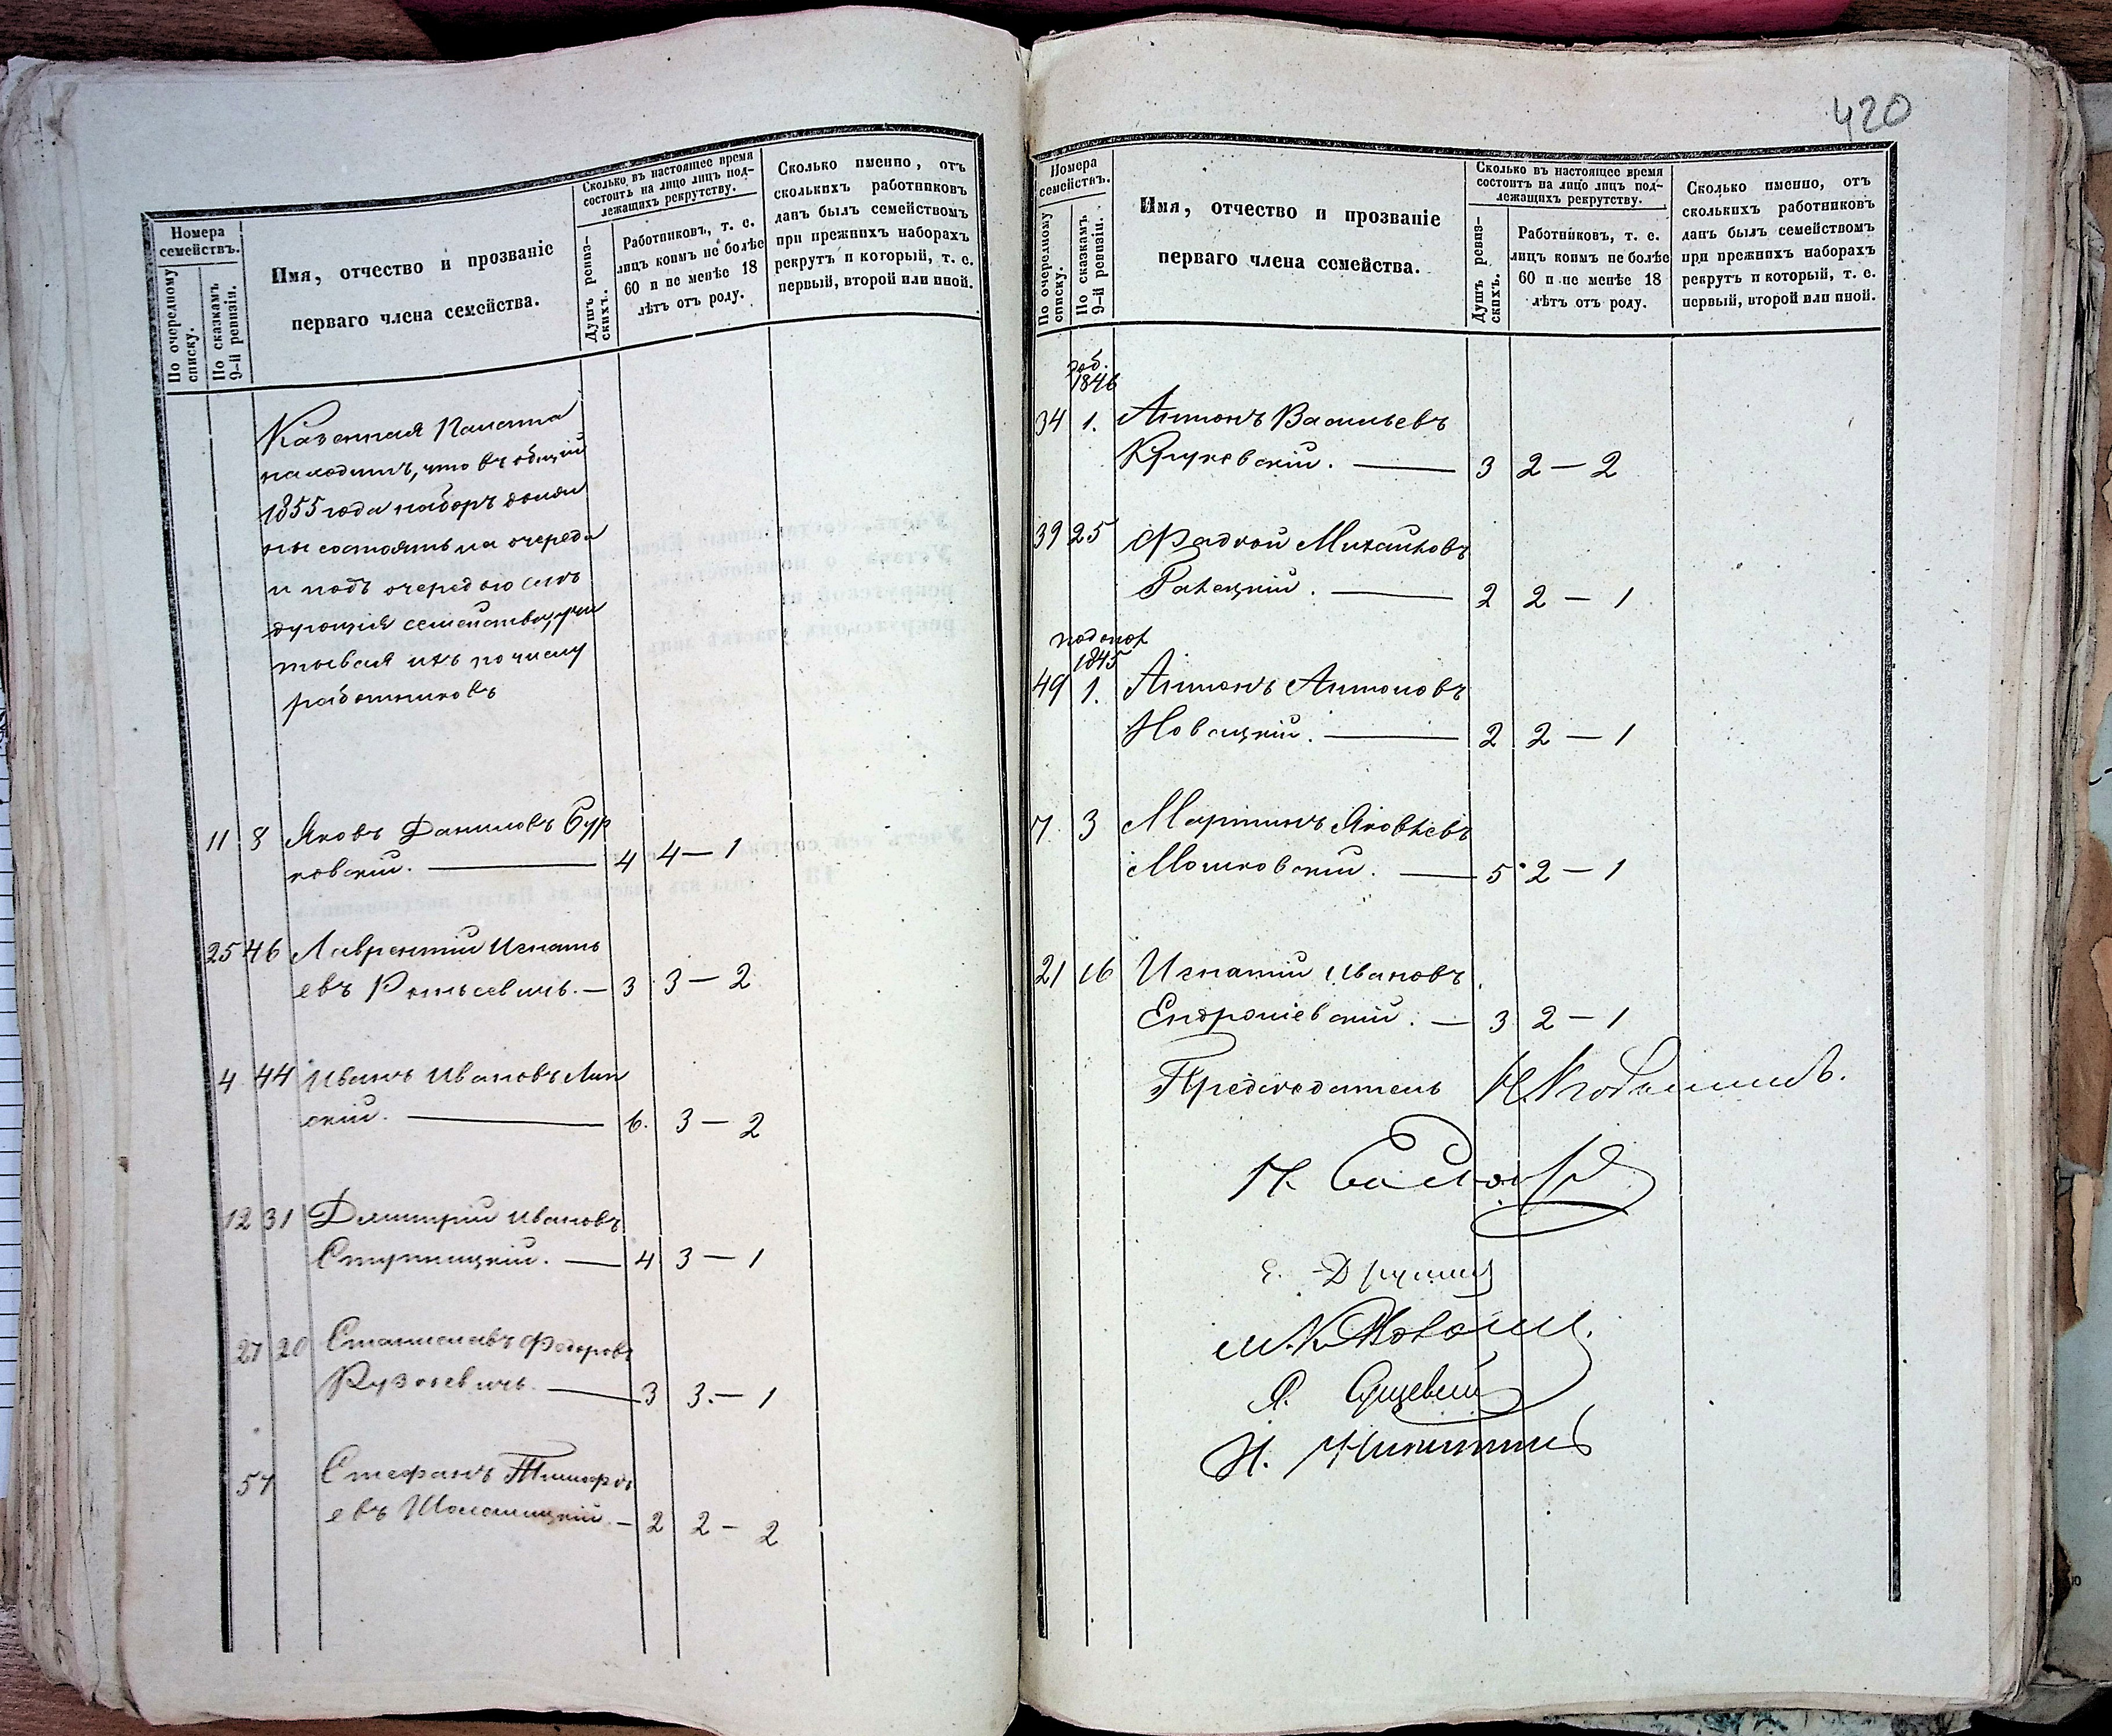 Номера семействъ.
По очередному списку.
По сказкамъ 9-й ревизіи.
Имя, отчество и прозваніе
перваго члена семейства.
Сколько въ настоящее время
состоитъ на лицо лицъ под-
лежащихъ рекрутству.
Душъ ревиз-
скихъ.
Работниковъ, т. е.
лицъ коимъ не болѣе
60 и не менѣе 18
лѣтъ отъ роду.
Сколько именно, отъ
сколькихъ работниковъ
данъ былъ семействомъ
при прежнихъ наборахъ
рекрутъ и который, т. е.
первый, второй или иной.
Казенная Палата
находитъ, что въ общій
1855 года наборъ долж
ны состоять на очереди
и подъ очередью слѣ
дующія семейства, учи
тывая ихъ по числу
работниковъ
11 8 Яковъ Даниловъ Бур
ковскій. — 4 4 — 1
25 46 Лаврентій Игнать
евъ — 3 3 — 2
4 44 Иванъ Ивановъ Лип
скій. — 6. 3 — 2
12 31 Димитрій Ивановъ
Ступницкій. — 4 3 — 1
27 20 Станиславъ Федоровъ
Рузкевичъ. — 3 3. — 1
57 Стефанъ Тимофѣ
евъ — 2 2 — 2
420
Номера
семействъ.
По очередному
списку.
По сказкамъ
9-й ревизіи.
Имя, отчество и прозваніе
перваго члена семейства.
Сколько въ настоящее время
состоитъ на лицо лицъ под-
лежащихъ рекрутству.
Душъ ревиз-
скихъ.
Работниковъ, т. е.
лицъ коимъ не болѣе
60 и не менѣе 18
лѣтъ отъ роду.
Сколько именно, отъ
сколькихъ работниковъ
данъ былъ семействомъ
при прежнихъ наборахъ
рекрутъ и который, т. е.
первый, второй или иной.
1846
34 1. Антонъ Васильевъ
Круковскій. — 3 2 — 2
39 25 Фадѣй Михайловъ
Гакецкій. — 2 2 — 1
1845
49 1. Антонъ Антоновъ
Новицкій. — 2 2 — 1
7 3 Мартинъ Яковлевъ
Мошковскій. — 5 2 — 1
21 16 Игнатій Ивановъ
Ендрошевскій. — 3 2 — 1
Предсѣдатель
Н. Никитинъ